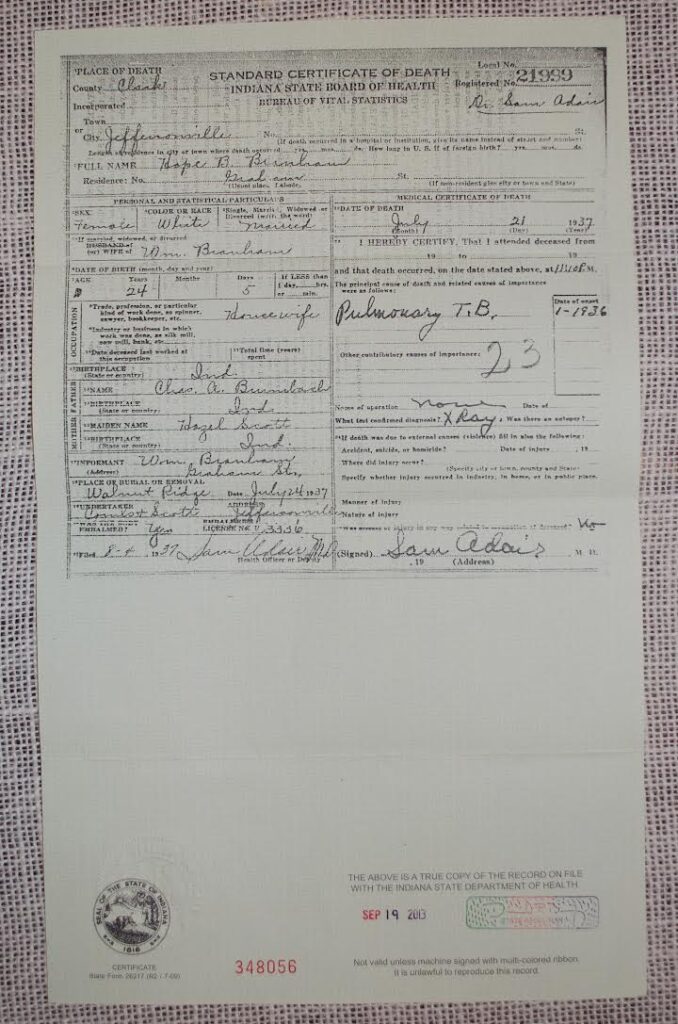 PLACE OF DEATH
County Clark
Incorporated
Town
or
City Jeffersonville No. St.
(If death occurred in a hospital or institution, give its name instead of street and number)
STANDARD CERTIFICATE OF DEATH
INDIANA STATE BOARD OF HEALTH
BUREAU OF VITAL STATISTICS
Local No.
Registered No. 21999
Dr. Sam Adair
Length of residence in city or town where death occurred yrs. mos. ds. How long in U. S. if of foreign birth? yrs. mos. ds.
FULL NAME Hope B. Branham
Residence: No. Graham St.
(Usual place, abode) (If non-resident give city or town and State)
PERSONAL AND STATISTICAL PARTICULARS
SEX Female
COLOR OR RACE White
Single, Married, Widowed or Divorced (write the word) Married
If married, widowed, or divorced
HUSBAND of
(or) WIFE of Wm. Branham
DATE OF BIRTH (month, day and year)
AGE Years 24 Months Days 5 If LESS than 1 day, hrs. or min.
OCCUPATION
Trade, profession, or particular
kind of work done, as spinner,
sawyer, bookkeeper, etc. Housewife
Industry or business in which
work was done, as silk mill,
saw mill, bank, etc.
Date deceased last worked at
this occupation
Total time (years)
spent
BIRTHPLACE
(State or country) Ind
FATHER
NAME Chas. A. Brumbach
BIRTHPLACE
(State or country) Ind.
MOTHER
MAIDEN NAME Hazel Scott
BIRTHPLACE
(State or country) Ind.
INFORMANT Wm. Branham
(Address) Graham St.
PLACE OF BURIAL OR REMOVAL
Walnut Ridge Date July 24 1937
UNDERTAKER Coots & Scott ADDRESS Jeffersonville
EMBALMED? Yes EMBALMER'S LICENSE No. 3336
Filed 8-4, 1937 Sam Adair MD
Health Officer or Deputy
MEDICAL CERTIFICATE OF DEATH
DATE OF DEATH
July 21 1937
(Month) (Day) (Year)
I HEREBY CERTIFY, That I attended deceased from
19 to 19
and that death occurred, on the date stated above, at M.
The principal cause of death and related causes of importance
were as follows:
Date of onset
Pulmonary T.B. 1-1936
Other contributory causes of importance:
23
Name of operation none Date of
What test confirmed diagnosis? X Ray. Was there an autopsy?
If death was due to external causes (violence) fill in also the following:
Accident, suicide, or homicide? Date of injury , 19
Where did injury occur?
(Specify city or town, county and State)
Specify whether injury occurred in industry, in home, or in public place.
Manner of injury
Nature of injury
Was disease or injury in any way related to occupation of deceased? No
(Signed) Sam Adair M. D.
, 19 (Address)
SEAL OF THE STATE OF INDIANA
1816
CERTIFICATE
348056
THE ABOVE IS A TRUE COPY OF THE RECORD ON FILE
WITH THE INDIANA STATE DEPARTMENT OF HEALTH
SEP 19 2013
Not valid unless machine signed with multi-colored ribbon.
It is unlawful to reproduce this record.